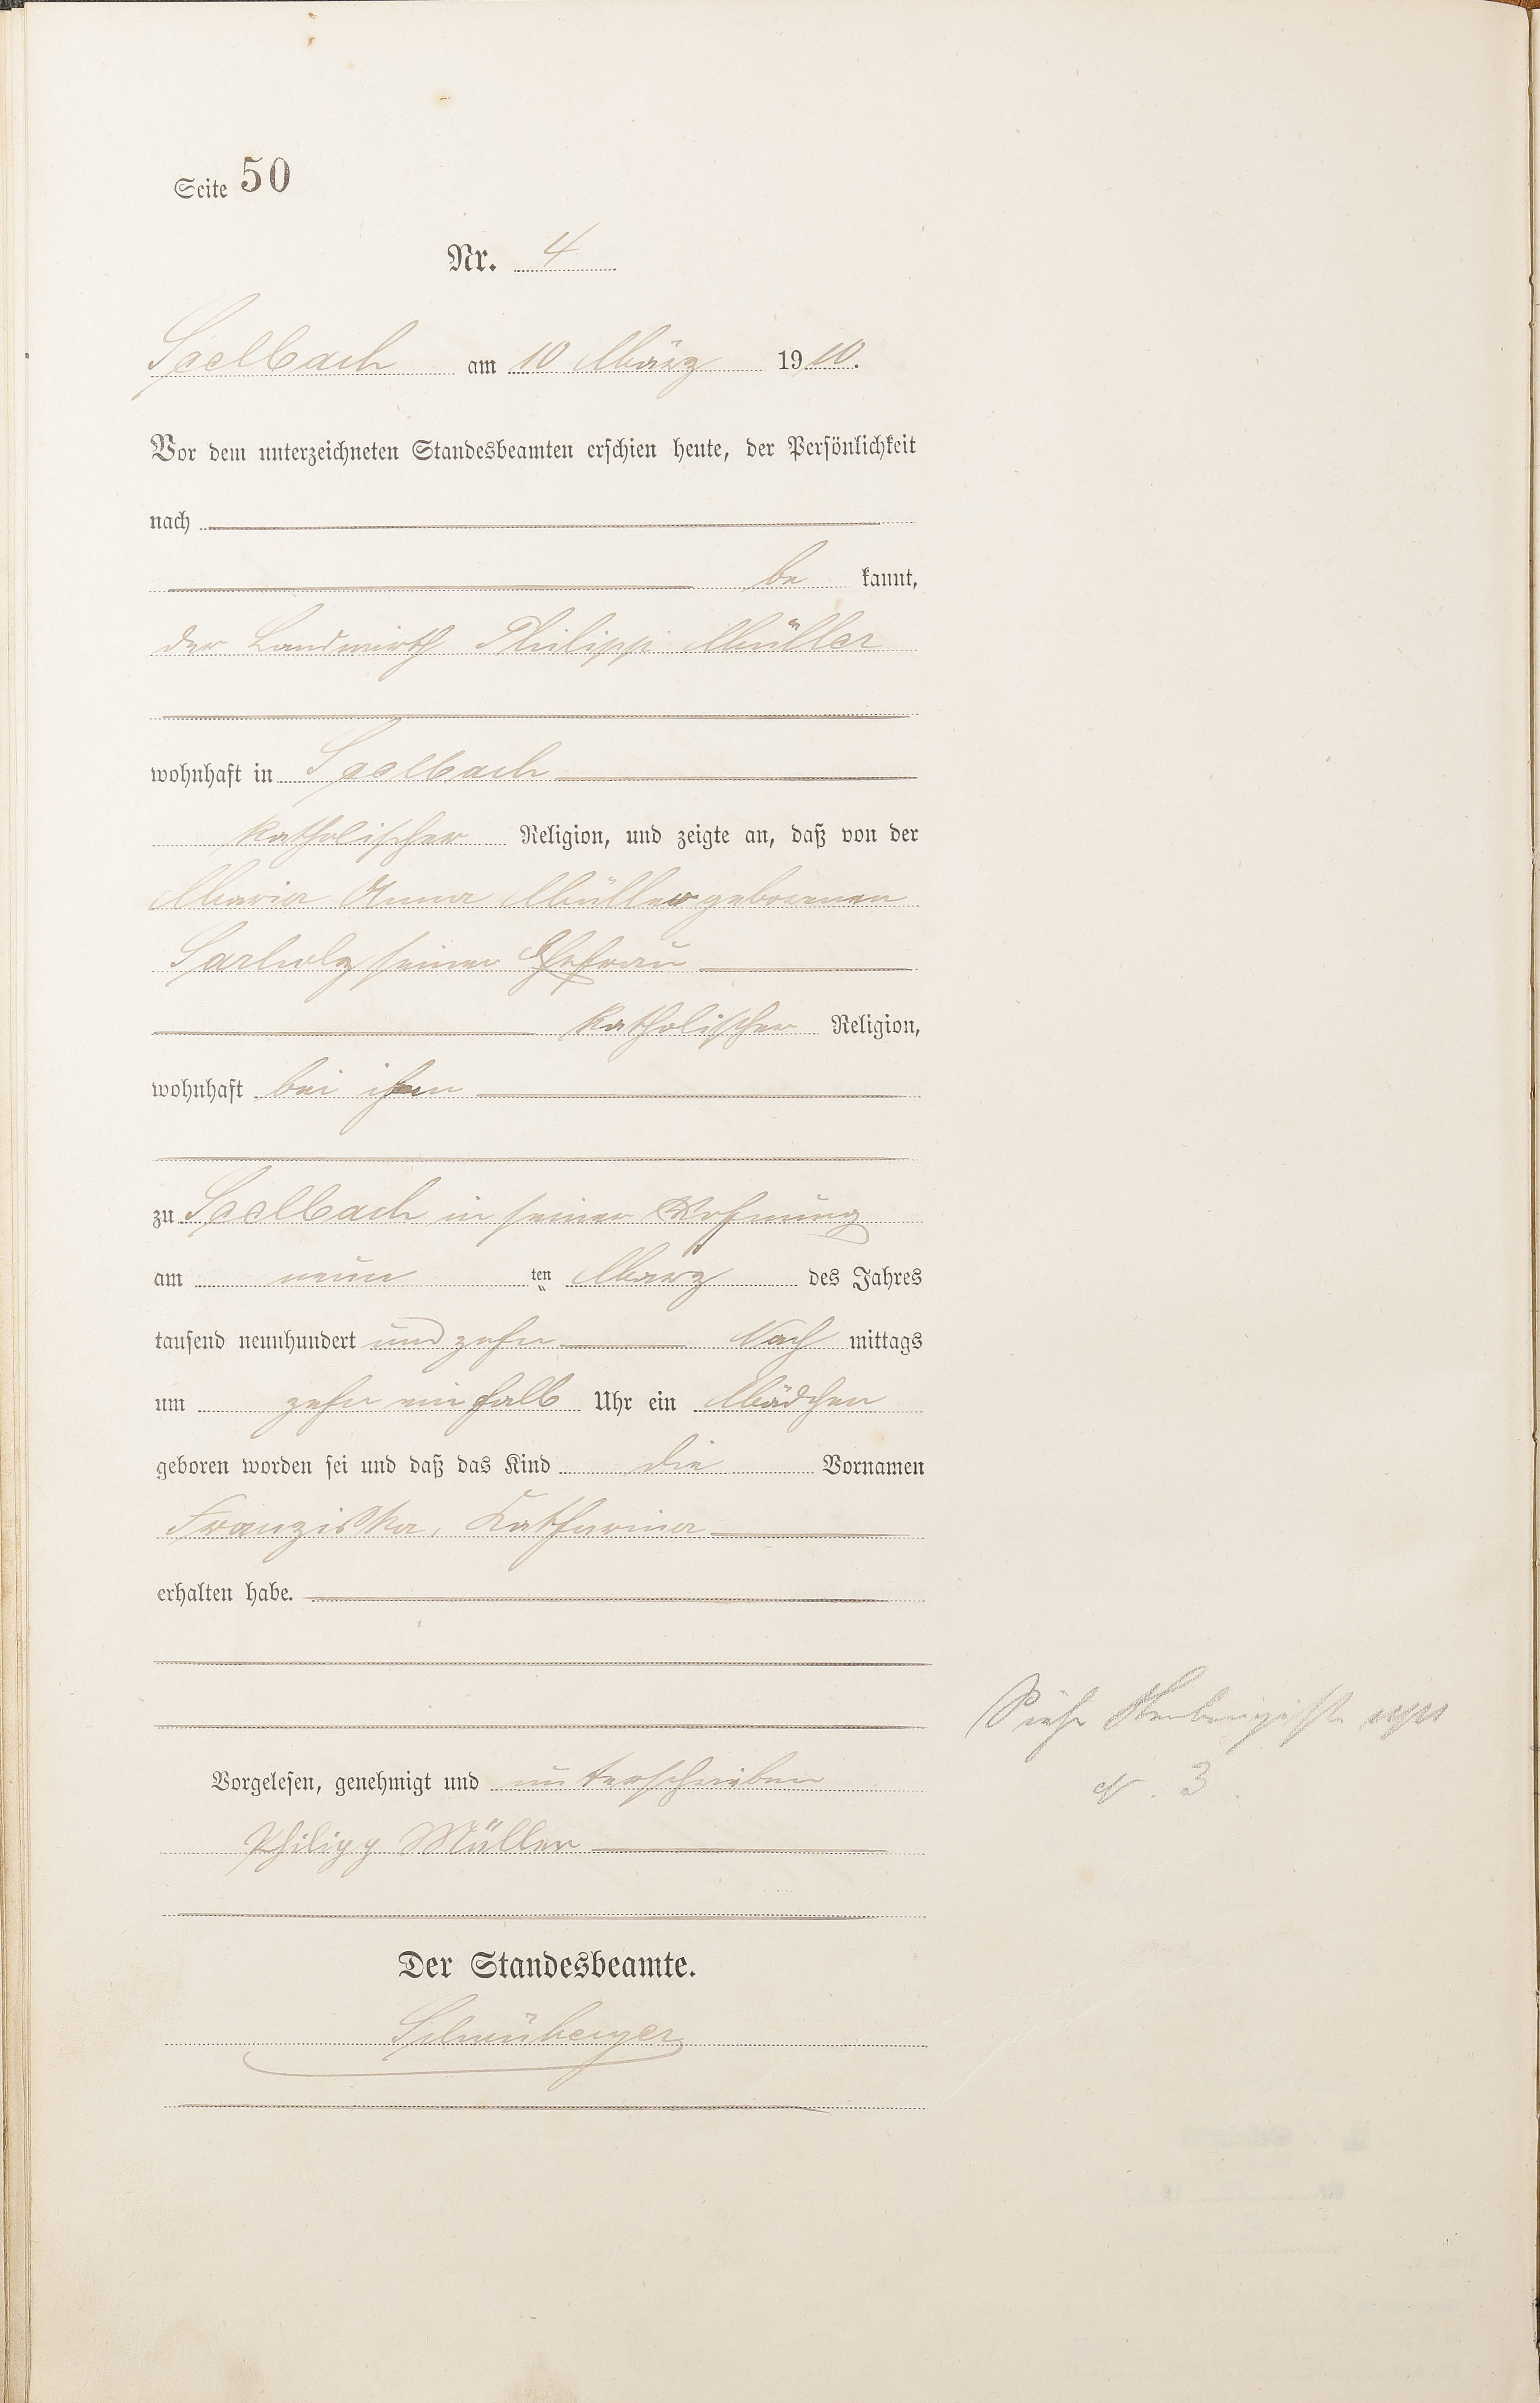 Seite 50
Nr. 4
Seelbach am 10 März 1910.
Vor dem unterzeichneten Standesbeamten erschien heute, der Persönlichkeit
nach
be kannt,
der Landwirth Philipp Müller
wohnhaft in Seelbach
katholischer Religion, und zeigte an, daß von der
Maria Anna Müller geborenen
Sarholz seiner Ehefrau
katholischer Religion,
wohnhaft bei ihm
zu Seelbach in seiner Wohnung
am neun ten März des Jahres
tausend neunhundert und zehn Nach mittags
um zehn ein halb Uhr ein Mädchen
geboren worden sei und daß das Kind die Vornamen
Franziska, Katharina
erhalten habe.
Vorgelesen, genehmigt und unterschrieben
Philipp Müller
Der Standesbeamte.
Siehe
N. 3.